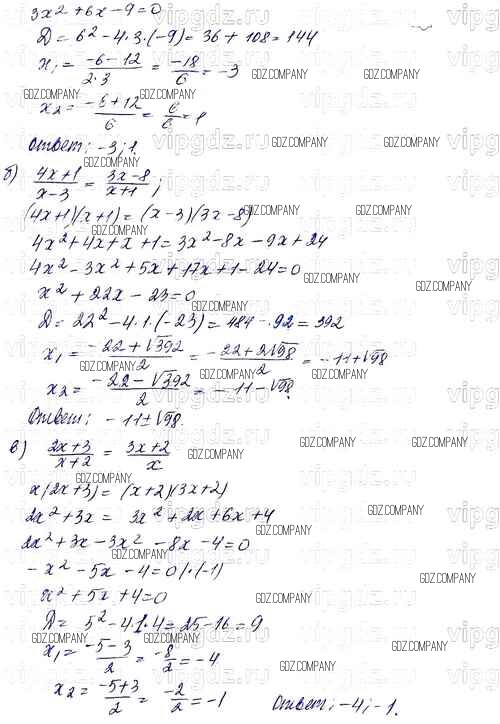 3x² + 6x - 9 = 0
D = 6² - 4·3·(-9) = 36 + 108 = 144
x₁ = (-6 - 12)/(2·3) = -18/6 = -3
x₂ = (-6 + 12)/6 = 6/6 = 1
Ответ: -3; 1.
б) (4x+1)/(x-3) = (3x-8)/(x+1);
(4x+1)(x+1) = (x-3)(3x-8)
4x² + 4x + x + 1 = 3x² - 8x - 9x + 24
4x² - 3x² + 5x + 17x + 1 - 24 = 0
x² + 22x - 23 = 0
D = 22² - 4·1·(-23) = 484 - 92 = 392
x₁ = (-22 + √392)/2 = (-22 + 2√98)/2 = -11 + √98
x₂ = (-22 - √392)/2 = -11 - √98.
Ответ: -11 ± √98.
в) (2x+3)/(x+2) = (3x+2)/x
x(2x+3) = (x+2)(3x+2)
2x² + 3x = 3x² + 2x + 6x + 4
2x² + 3x - 3x² - 8x - 4 = 0
-x² - 5x - 4 = 0 |·(-1)
x² + 5x + 4 = 0
D = 5² - 4·1·4 = 25 - 16 = 9
x₁ = (-5 - 3)/2 = -8/2 = -4
x₂ = (-5 + 3)/2 = -2/2 = -1
Ответ: -4; -1.
vipgdz.ru
GDZ.COMPANY